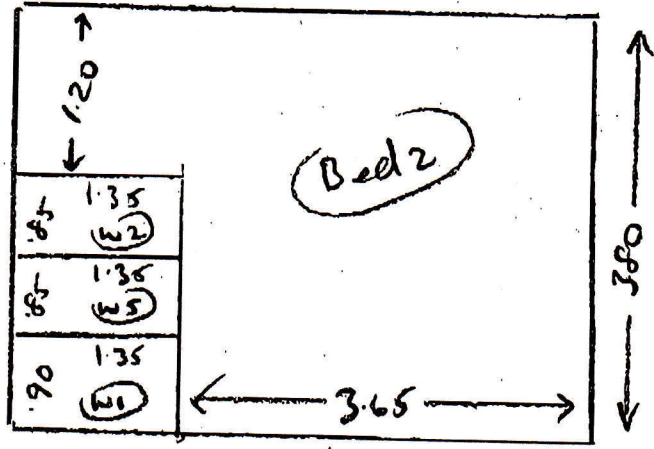 1.20
Bed 2
.85 1.35
W2
.85 1.35
W5
.90 1.35
W1
3.65
3.80